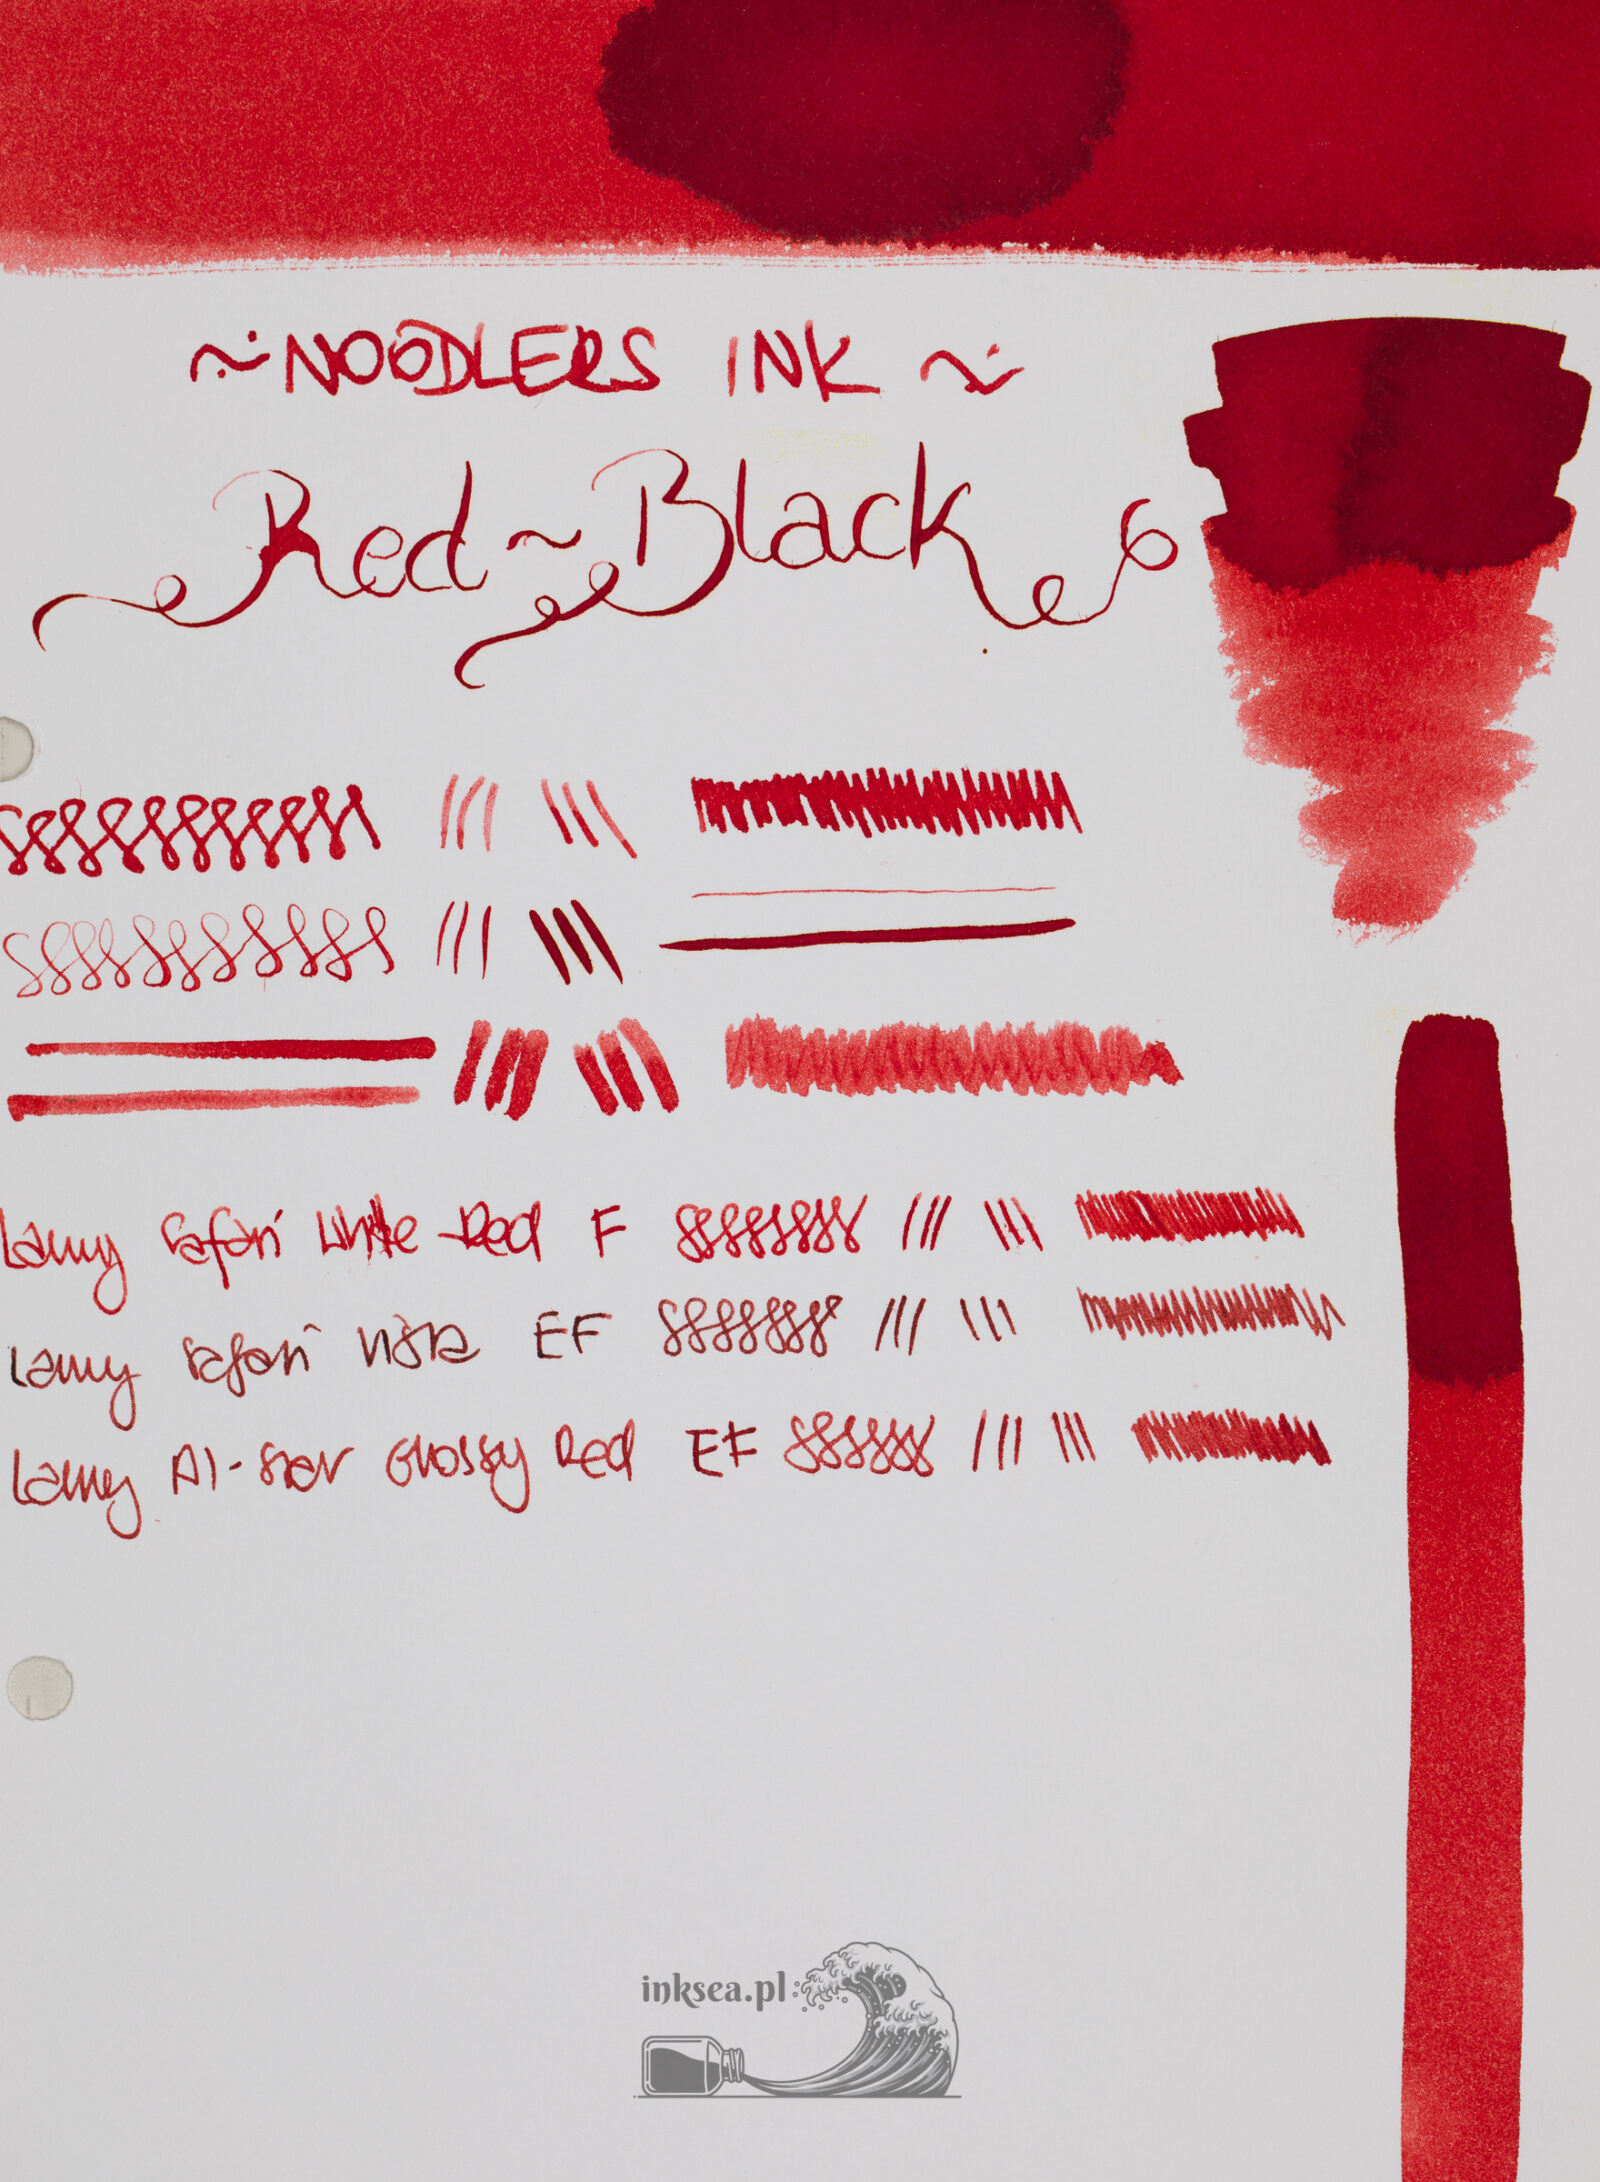 ~ NOODLERS INK ~
Red~Black
Lamy Safari White-Red F
Lamy Safari Vista EF
Lamy Al-Star Glossy Red EF
inksea.pl